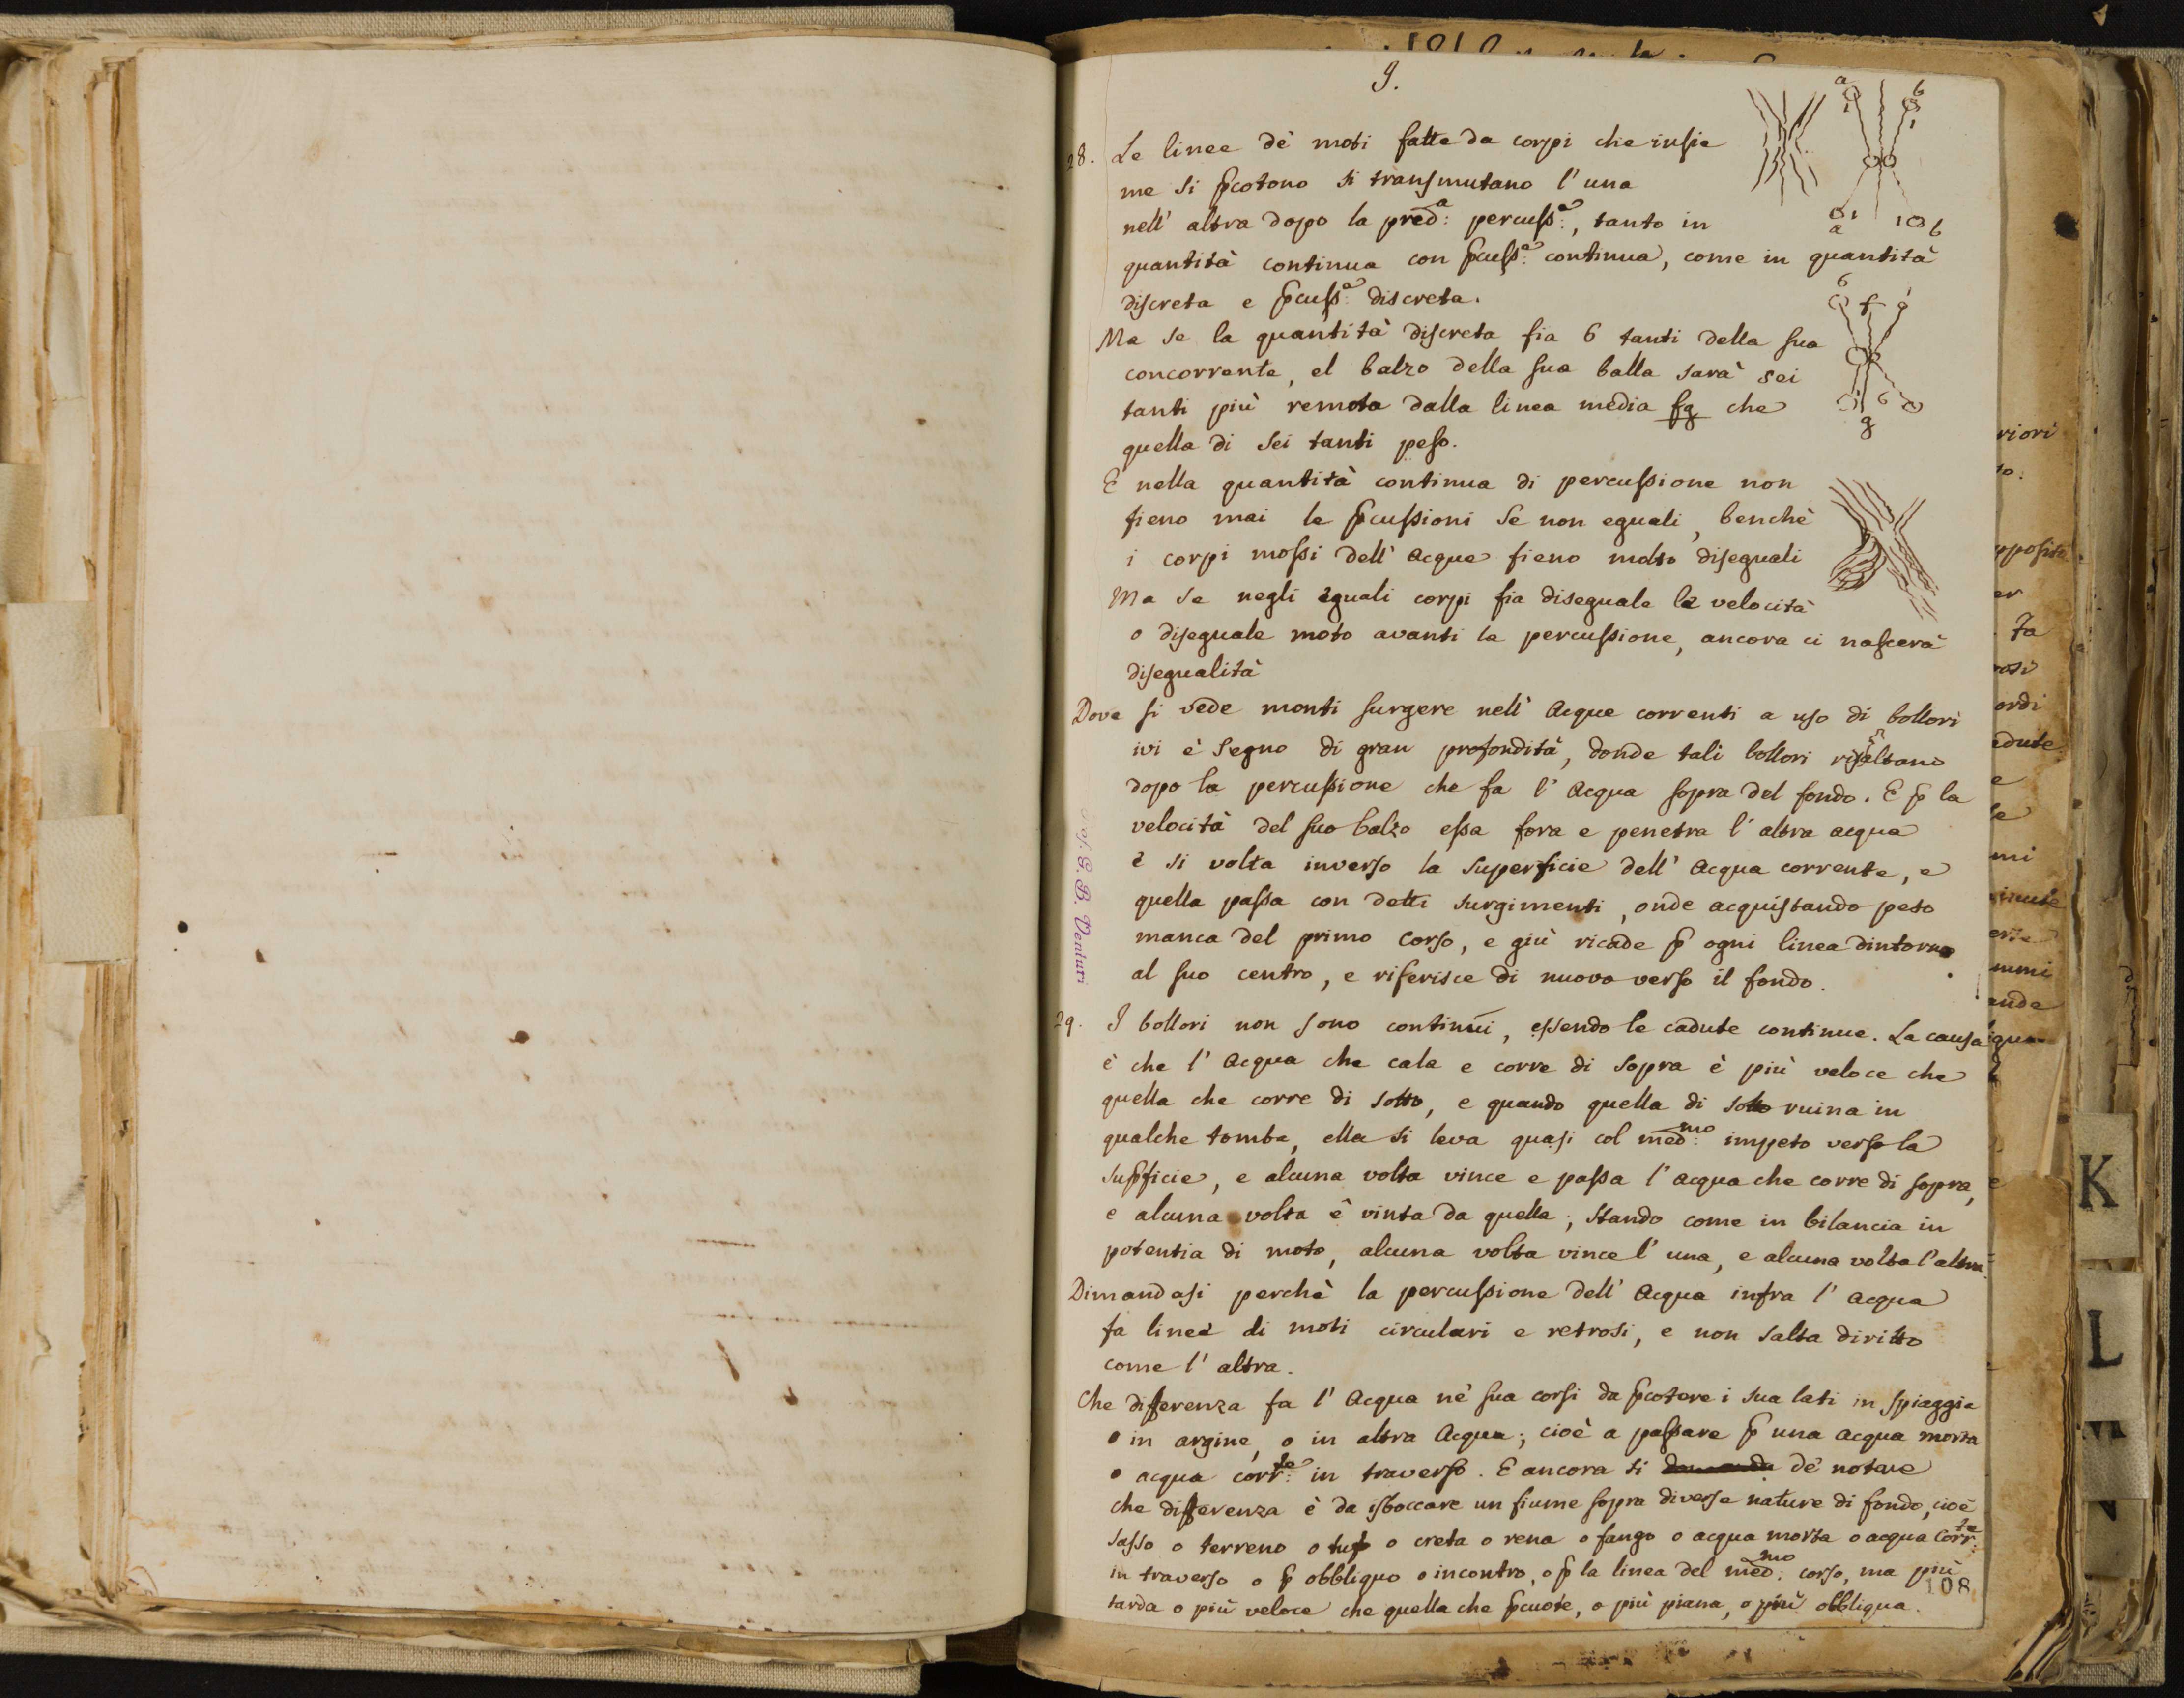 9.
28. Le linee de' moti fatte da corpi che insie
me si p̄cotono si transmutano l'una
nell'altra dopo la pred:ᵃ percuss:ᵉ, tanto in
quantità continua con p̄cuss:ᵉ continua, come in quantità
discreta e p̄cuss:ᵉ discreta.
Ma se la quantità discreta fia 6 tanti della sua
concorrente, el balzo della sua balla sarà sei
tanti più remota dalla linea media fg che
quella di sei tanti peso.
E nella quantità continua di percussione non
fieno mai le p̄cussioni se non eguali, benchè
i corpi mossi dell'acque fieno molto diseguali
Ma se negli eguali corpi fia diseguale le velocità
o diseguale moto avanti la percussione, ancora ci nascerà
disegualità
Dove si vede monti surgere nell'acque correnti a uso di bollori
ivi è segno di gran profondità, donde tali bollori risaltano
dopo la percussione che fa l'acqua sopra del fondo. E p̄ la
velocità del suo balzo essa fora e penetra l'altra acqua
e si volta inverso la superficie dell'acqua corrente, e
quella passa con detti surgimenti, onde acquistando peso
manca del primo corso, e giù ricade p̄ ogni linea dintorno
al suo centro, e riferisce di nuovo verso il fondo.
29. I bollori non sono continui, essendo le cadute continue. La causa
è che l'acqua che cala e corre di sopra è più veloce che
quella che corre di sotto, e quando quella di sotto ruina in
qualche tomba, ella si leva quasi col med:ᵐᵒ impeto verso la
sup̄ficie, e alcuna volta vince e passa l'acqua che corre di sopra,
e alcuna volta è vinta da quella; stando come in bilancia in
potentia di moto, alcuna volta vince l'una, e alcuna volta l'altra.
Dimandasi perchè la percussione dell'acqua infra l'acqua
fa linee di moti circulari e retrosi, e non salta diritto
come l'altra.
Che differenza fa l'acqua ne' sua corsi da p̄cotere i sua lati in spiaggia
o in argine, o in altra acqua; cioè a passare p̄ una acqua morta
o acqua corr:ᵗᵉ in traverso. E ancora si domanda de' notare
che differenza è da isboccare un fiume sopra diverse nature di fondo, cioè
sasso o terreno o tufo o creta o rena o fango o acqua morta o acqua corr:ᵗᵉ
in traverso o p̄ obbliquo o incontro, o p̄ la linea del med:ᵐᵒ corso, ma più
tarda o più veloce che quella che p̄cuote, o più piana, o più obbliqua.
108
a b
1 1
a 1 1 b
b f 1
1 6
g
G. B. Venturi
riori
to.
pposite
er
fa
rosi
ordi
adute
e
le
mi
erte
mmi
ande
qua
K
L
M
N